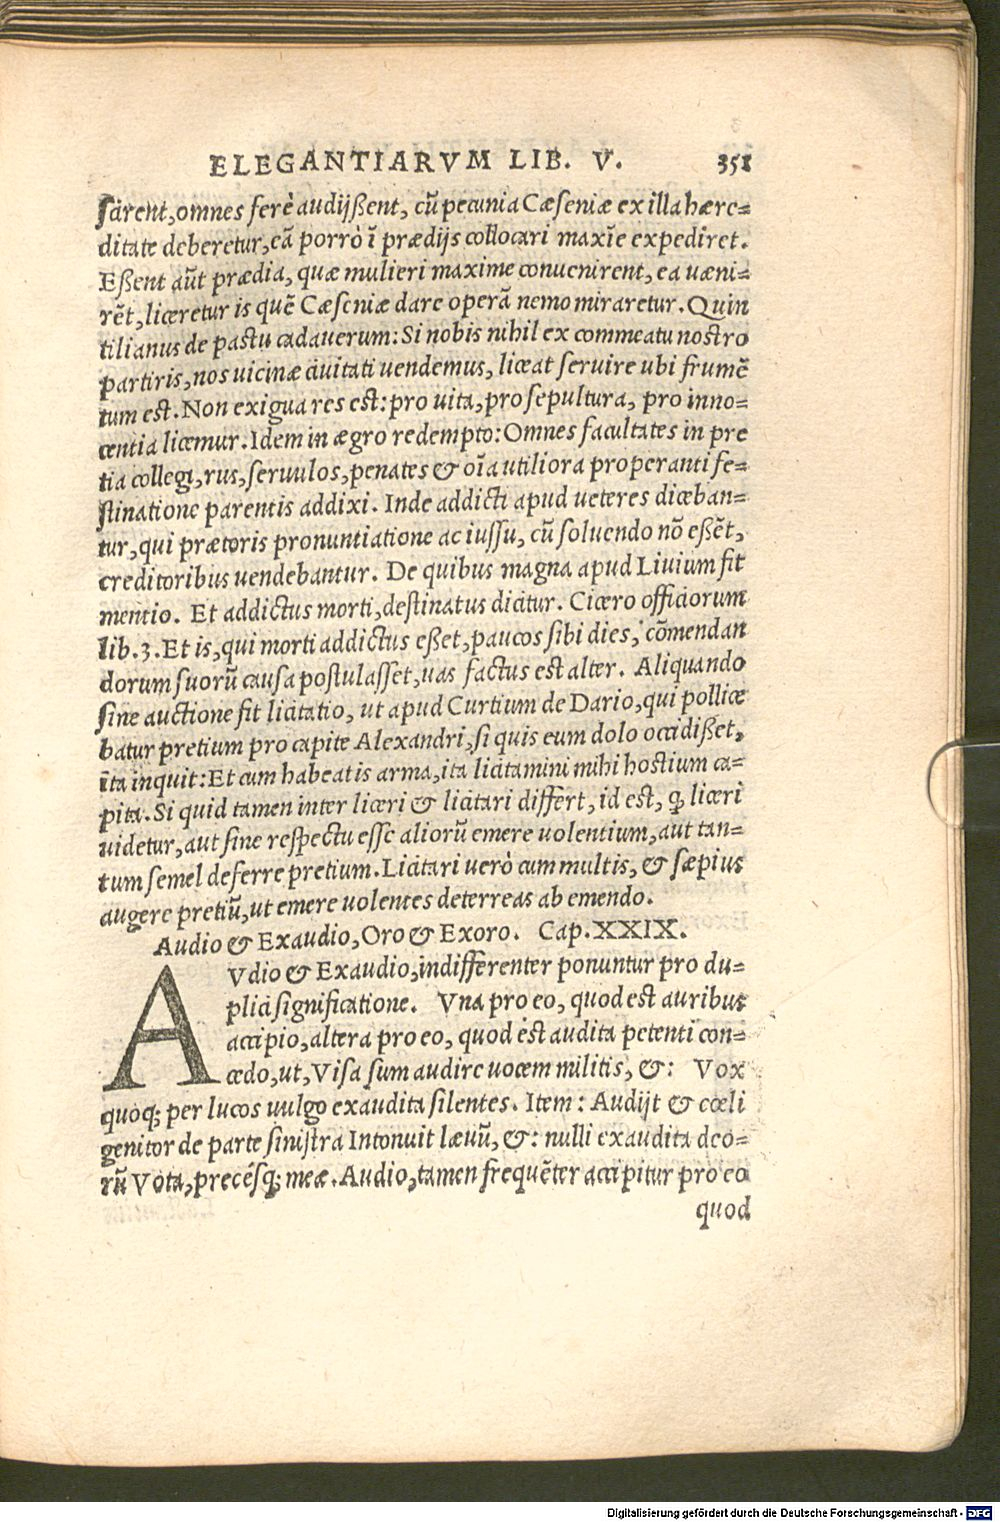 ELEGANTIARVM LIB. V. 351
sarent, omnes ferè audijßent, cũ pecunia Cæseniæ ex illa hære-
ditate deberetur, eã porrò ĩ prædijs collocari maxĩe expediret.
Eßent aũt prædia, quæ mulieri maxime conuenirent, ea uæni-
rẽt, liceretur is quẽ Cæseniæ dare operã nemo miraretur. Quin
tilianus de pastu cadauerum: Si nobis nihil ex commeatu nostro
partiris, nos uicinæ ciuitati uendemus, liceat seruire ubi frumẽ
tum est. Non exigua res est: pro uita, pro sepultura, pro inno-
centia licemur. Idem in ægro redempto: Omnes facultates in pre
tia collegi, rus, seruulos, penates & oĩa utiliora properanti fe-
stinatione parentis addixi. Inde addicti apud ueteres diceban-
tur, qui prætoris pronuntiatione ac iussu, cũ soluendo nõ eßẽt,
creditoribus uendebantur. De quibus magna apud Liuium fit
mentio. Et addictus morti, destinatus dicitur. Cicero officiorum
lib. 3. Et is, qui morti addictus eßet, paucos sibi dies, cõmendan
dorum suorũ causa postulasset, uas factus est alter. Aliquando
sine auctione fit licitatio, ut apud Curtium de Dario, qui pollice
batur pretium pro capite Alexandri, si quis eum dolo occidißet,
ita inquit: Et cum habeatis arma, ita licitamini mihi hostium ca-
pita. Si quid tamen inter liceri & licitari differt, id est, ꝙ liceri
uidetur, aut sine respectu esse aliorũ emere uolentium, aut tan-
tum semel deferre pretium. Licitari uerò cum multis, & sæpius
augere pretiũ, ut emere uolentes deterreas ab emendo.
Audio & Exaudio, Oro & Exoro. Cap. XXIX.
AVdio & Exaudio, indifferenter ponuntur pro du-
plici significatione. Vna pro eo, quod est auribus
accipio, altera pro eo, quod est audita petenti con-
cedo, ut, Visa sum audire uocem militis, &: Vox
quoq; per lucos uulgo exaudita silentes. Item: Audijt & cœli
genitor de parte sinistra Intonuit læuũ, &: nulli exaudita deo-
rũ Vota, precésq; meæ. Audio, tamen frequẽter accipitur pro eo
quod
Digitalisierung gefördert durch die Deutsche Forschungsgemeinschaft - DFG